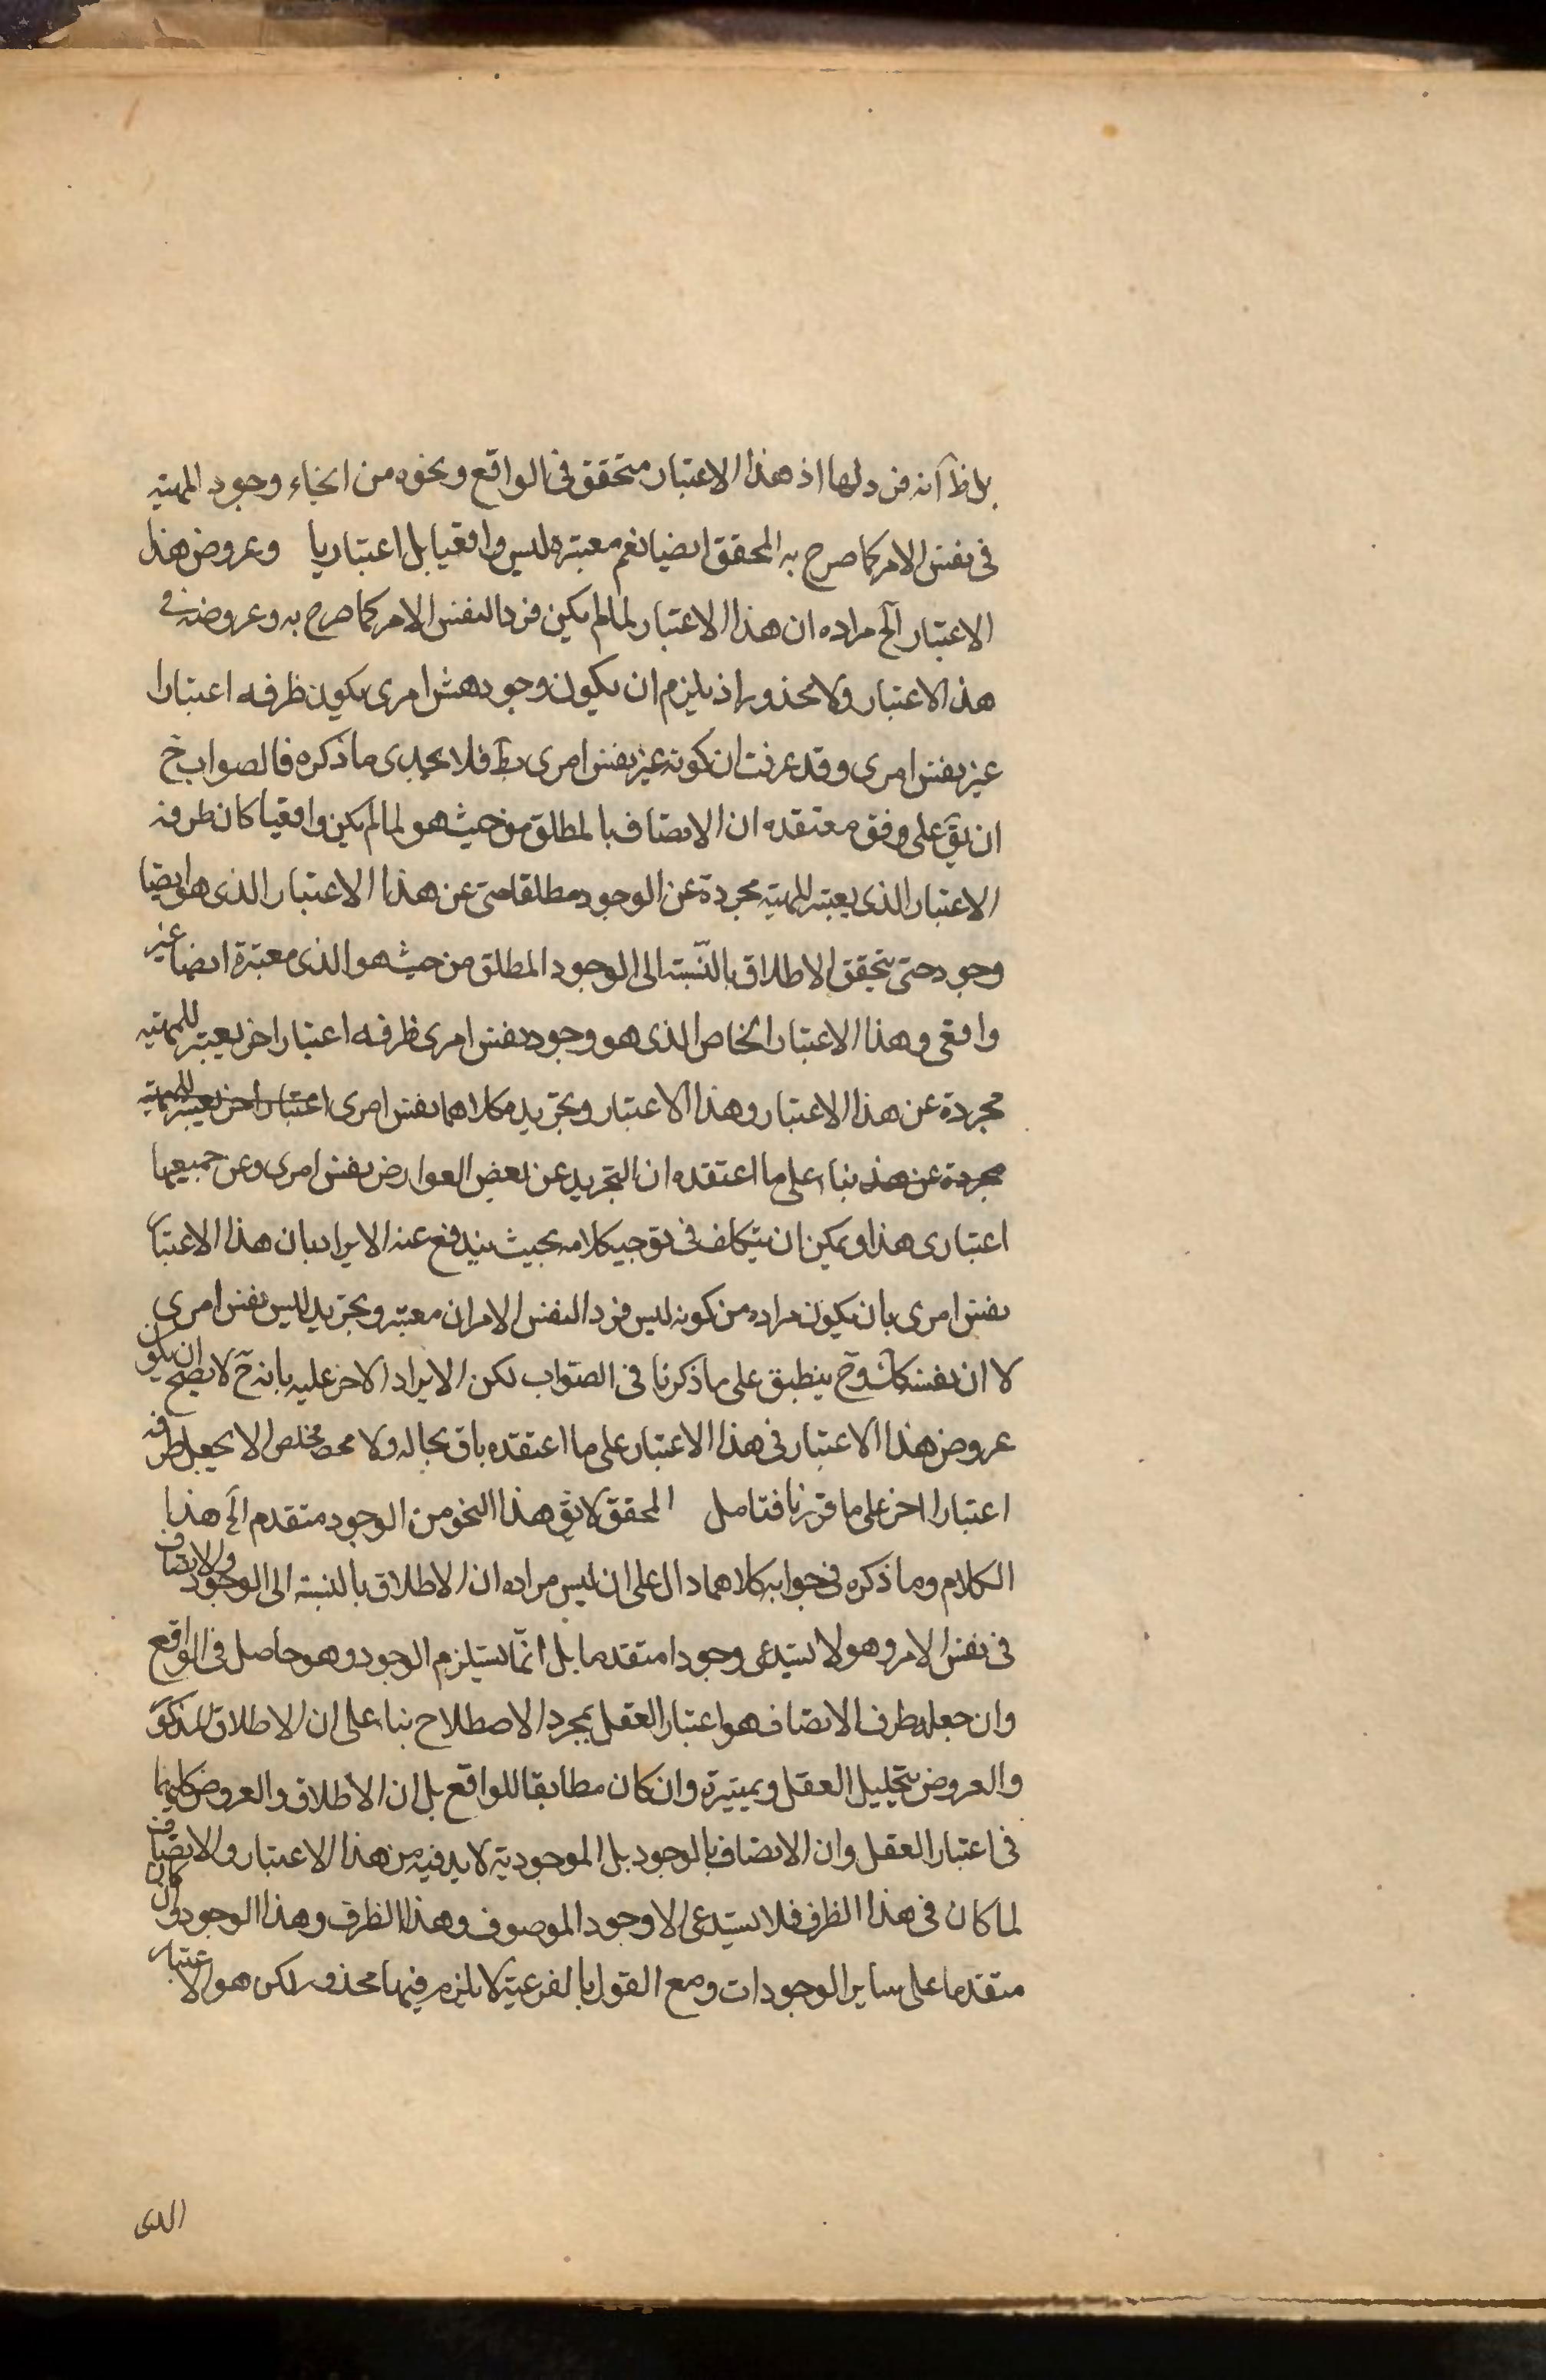 بل ظ انه فرد لها اذ هذا الاعتبار متحقق فى الواقع ونحوه من انحاء وجود المهية
فى نفس الامر كما صرح به المحقق ايضا نعم معتبره ليس واقعيا بل اعتباريا وعروض هذا
الاعتبار الخ مراده ان هذا الاعتبار لما لم يكن فردا لنفس الامر كما صرح به وعروضه فى
هذا الاعتبار ولا محذور اذ يلزم ان يكون وجود نفس امرى يكون ظرفه اعتبارا
غير نفس امرى وقد عرفت ان كونه غير نفس امرى بط فلا يجدى ما ذكره فالصواب ح
ان يق على وفق معتقده ان الاتصاف بالمطلق من حيث هو لما لم يكن واقعيا كان ظرفه
الاعتبار الذى يعتبر المهية مجردة عن الوجود مطلقا حتى عن هذا الاعتبار الذى هو ايضا
وجود حتى يتحقق الاطلاق بالنسبة الى الوجود المطلق من حيث هو الذى معتبرة ايضا غير
واقعى وهذا الاعتبار الخاص الذى هو وجود نفس امرى ظرفه اعتبار اخر يعتبر للمهية
مجردة عن هذا الاعتبار وهذا الاعتبار وتجريده كلاهما نفس امرى اعتبار اخر يعتبر للمهية
مجردة عن هذه بناء على ما اعتقده ان التجريد عن بعض العوارض نفس امرى وعن جميعها
اعتبارى هذا ويمكن ان يتكلف فى توجيه كلامه بحيث يندفع عنه الايراد بان هذا الاعتبار
نفس امرى بان يكون مراده من كونه ليس فردا لنفس الامر ان معتبره وتجريده ليس نفس امرى
لا ان نفسه كك وح ينطبق على ما ذكرنا فى الصواب لكن الايراد الاخر عليه بانه ح لا يصح ان يكون
عروض هذا الاعتبار فى هذا الاعتبار على ما اعتقده باق بحاله ولا مخلص الا بجعل ظرفه
اعتبارا اخر على ما قررنا فتامل المحقق لا يق هذا النحو من الوجود متقدم الخ هذا
الكلام وما ذكره فى جوابه كلاهما دال على ان ليس مراده ان الاطلاق بالنسبة الى الوجود والاتصاف
فى نفس الامر وهو لا يستدعى وجودا متقدما بل انما يستلزم الوجود وهو حاصل فى الواقع
وان جعله ظرف الاتصاف هو اعتبار العقل بمجرد الاصطلاح بناء على ان الاطلاق المذكور
والعروض بتحليل العقل وتمييزه وان كان مطابقا للواقع بل ان الاطلاق والعروض كليهما
فى اعتبار العقل وان الاتصاف بالوجود بل الموجودية لا بد فيه من هذا الاعتبار والاتصاف
لما كان فى هذا الظرف فلا يستدعى الا وجود الموصوف وهذا الظرف وهذا الوجود وان كان
متقدما على ساير الوجودات ومع القول بالفرعية لا يلزم فيها محذور لكن هو الاعتبار
الذى